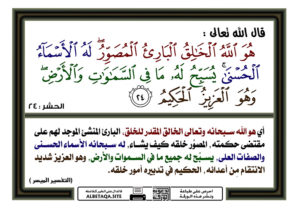 قال الله تعالى :
هُوَ ٱللَّهُ ٱلْخَـٰلِقُ ٱلْبَارِئُ ٱلْمُصَوِّرُ ۖ لَهُ ٱلْأَسْمَآءُ
ٱلْحُسْنَىٰ ۚ يُسَبِّحُ لَهُۥ مَا فِى ٱلسَّمَـٰوَٰتِ وَٱلْأَرْضِ ۖ
وَهُوَ ٱلْعَزِيزُ ٱلْحَكِيمُ ٢٤
الحشر : ٢٤
أي هو الله سبحانه وتعالى الخالق المقدر للخلق، البارئ المنشئ الموجد لهم على
مقتضى حكمته، المصوِّر خلقه كيف يشاء، له سبحانه الأسماء الحسنى
والصفات العلى، يسبّح له جميع ما في السموات والأرض، وهو العزيز شديد
الانتقام من أعدائه، الحكيم في تدبيره أمور خلقه.
(التفسير الميسر)
ALBETAQA.SITE